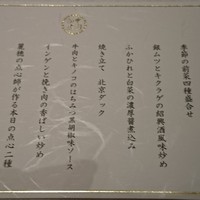 季節の前菜四種盛合せ
銀ムツとキクラゲの紹興酒風味炒め
ふかひれと白菜の濃厚醤煮込み
焼き立て 北京ダック
牛肉とキノコのはちみつ黒胡椒味ソース
インゲンと挽き肉の香ばしい炒め
麗穂の点心師が作る本日の点心二種